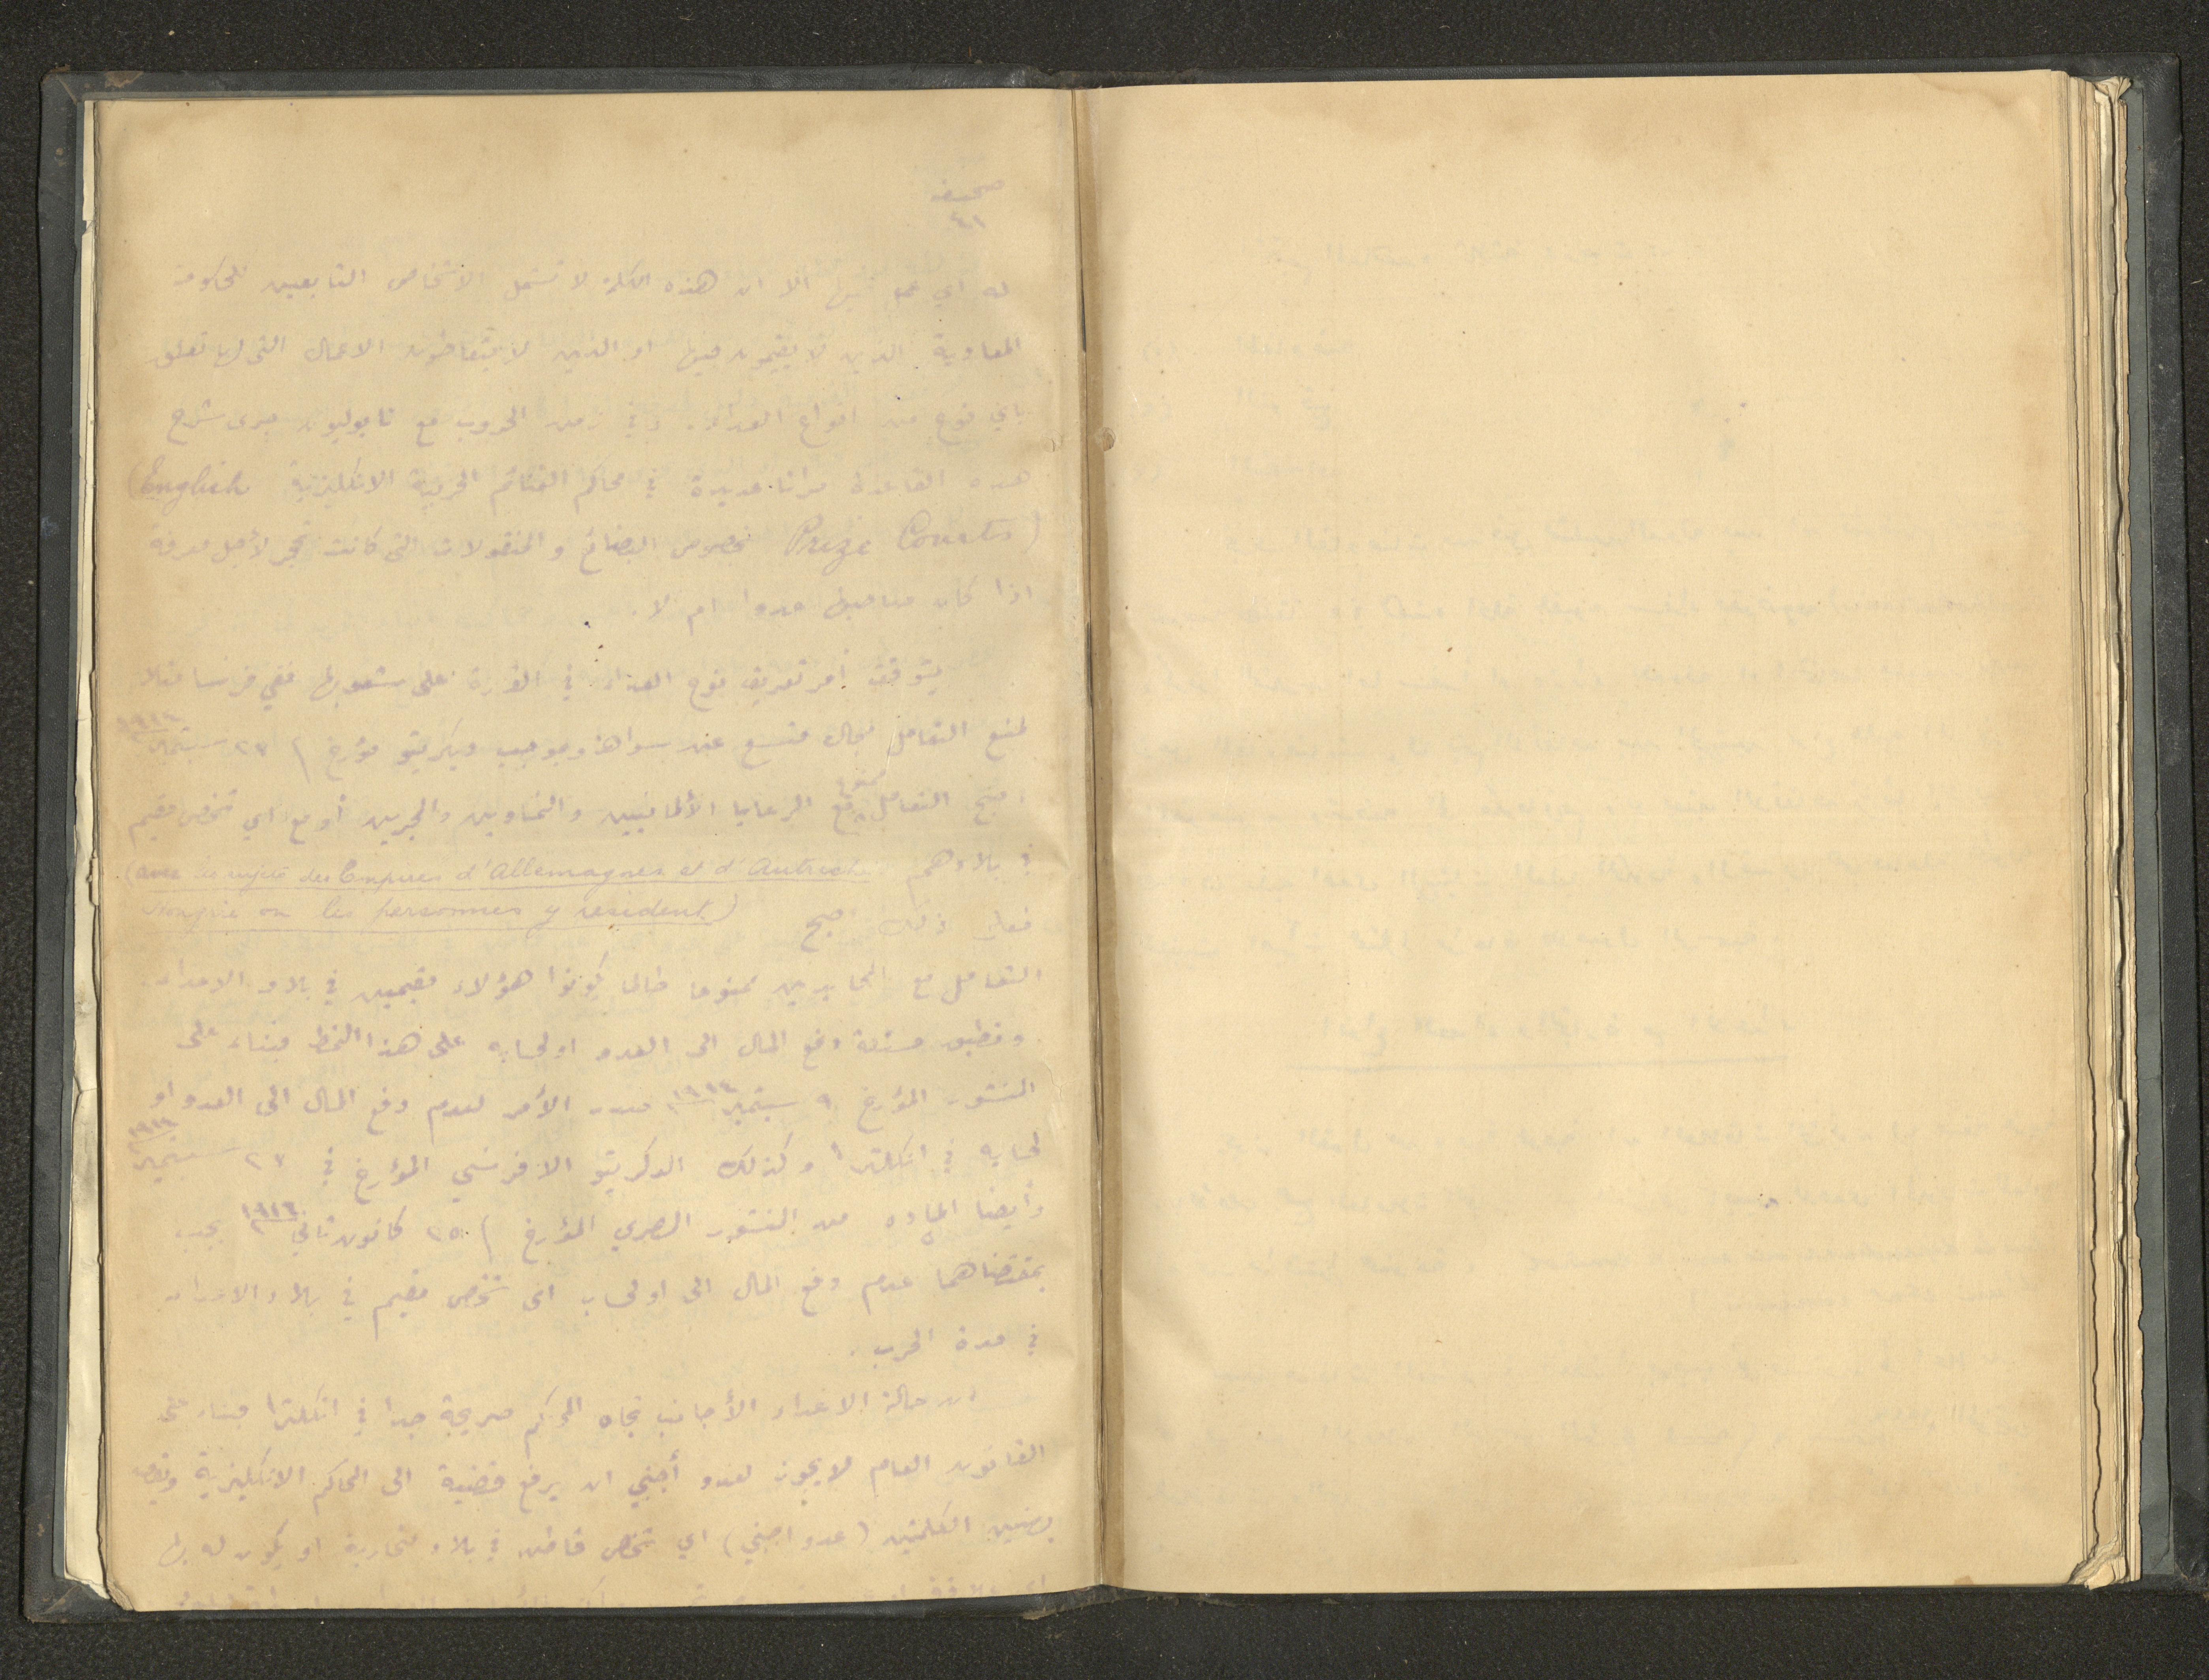 صحيفة
٤١
له اي عمل فيها الا ان هذه الكلمة لا تشمل الاشخاص التابعين للحكومة
المعادية الذين لا يقيمون فيها او الذين لا يتعاطون الاعمال التى لها تعلق
باي نوع من انواع العداء. وفي زمن الحروب مع نابوليون جرى شرح
هذه القاعدة مرارا عديدة في محاكم الغنائم الحربية الانكليزية (English
Prize Courts) بخصوص البضائع والمنقولات التى كانت تحجز لأجل معرفة
اذا كان صاحبها عدوا ام لا.
يتوقف أمر تعريف نوع العداء في القارة على شعوبها ففي فرنسا مثلا
لمنع التعامل مجال متسع عند سواها وبموجب ديكريتو مؤرخ ٢٧ سبتمبر ١٩١٤
التعامل ممنوع مع الرعايا الألمانيين والنمساويين والمجريين أو مع اي شخص مقيم
في بلادهم (avec les sujets des Empires d'Allemagnes et d'Autriche
Hongrie ou les personnes y résident)
فعلى ذلك صبح
التعامل مع المحايدين ممنوعا طالما كونوا هؤلاء مقيمين في بلاد الاعداء.
وتطبق مسئلة دفع المال الى العدو او لحسابه على هذا النمط فبناء على
المنشور المؤرخ ٩ سبتمبر ١٩١٤ صدر الأمر لعدم دفع المال الى العدو او
لحسابه في انكلترا وكذلك الدكريتو الافرنسي المؤرخ في ٢٧ سبتمبر ١٩١٤
وأيضا الماده من المنشور المصري المؤرخ ٢٥ كانون ثاني ١٩١٦ يجب
بمقتضاهما عدم دفع المال الى او لحساب اى شخص مقيم في بلاد الاعداء
في مدة الحرب.
ان حالة الاعداء الأجانب تجاه المحاكم صريحة جدا في انكلترا فبناء على
القانون العام لا يجوز لعدو أجنبي ان يرفع قضية الى المحاكم الانكليزية ويقصد
بهتين الكلمتين (عدو اجنبي) اي شخص قاطن في بلاد متحاربة او يكون له بها